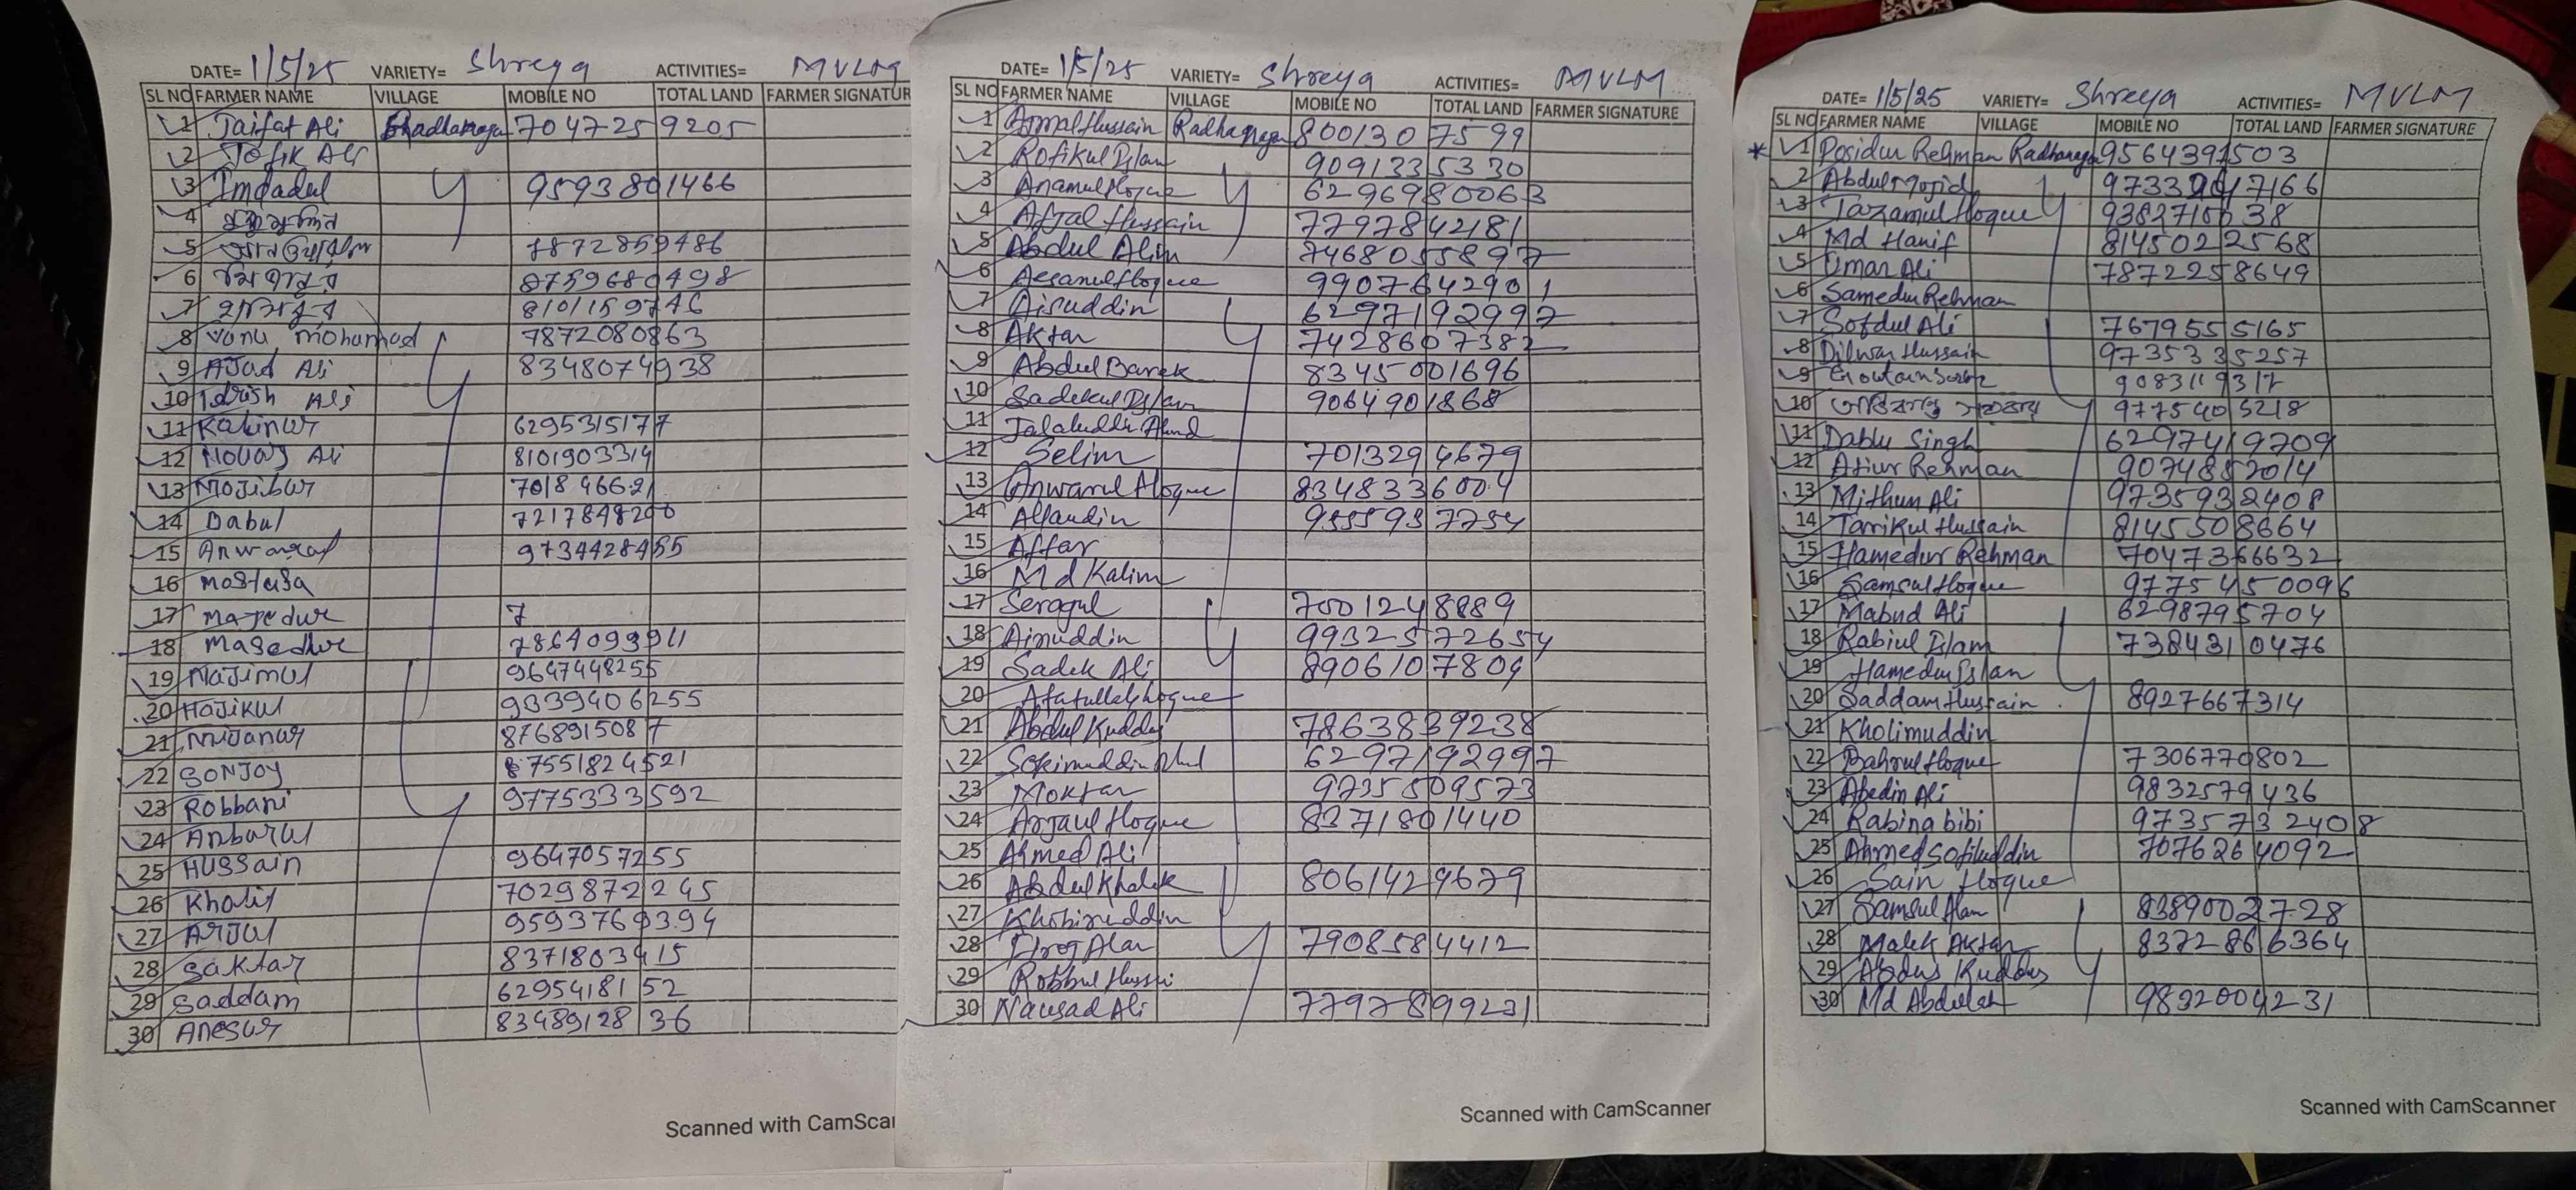 DATE= 1/5/25 VARIETY= Shreya ACTIVITIES= MVLM
SL NO FARMER NAME VILLAGE MOBILE NO TOTAL LAND FARMER SIGNATUR
1 Taifat Ali Radhanagar 7047259205
2 Tofik Ali
3 Imdadul 9593801466
4
5 7872859486
6 8759680498
7 8101159746
8 Vanu Mohammad 7872080863
9 AJad Ali 8348074938
10 Idrish Ali
11 Rabinur 6295315177
12 Nowaj Ali 8101903314
13 Mojibur 7018 46621
14 Babul 7217848200
15 Anwarul 9734428455
16 Mostafa
17 Majedur 7
18 Masedur 7864093911
19 Najimul 9647448255
20 Hajikul 9339406255
21 Mijanur 8768915087
22 SONJOY 87551824521
23 Robbani 9775333592
24 Anbarul
25 HUSSain 9647057255
26 Khalil 7029872245
27 ARJUL 9593769394
28 Saktar 8371803415
29 Saddam 6295418152
30 Anesur 8348912836
Scanned with CamScan
DATE= 1/5/25 VARIETY= Shreya ACTIVITIES= MVLM
SL NO FARMER NAME VILLAGE MOBILE NO TOTAL LAND FARMER SIGNATURE
1 Ajmal Hussain Radhanagar 8001307599
2 Rofikul Islam 9091335330
3 Anamul Hoque 6296980063
4 Afjal Hussain 7797842181
5 Abdul Alim 7468055897
6 Aesanul Hoque 9907642901
7 Aisuddin 6297192997
8 Aktar 7428607382
9 Abdul Barek 8345001696
10 Sadekul Islam 9064901868
11 Jalaluddin Ahmd
12 Selim 7013294679
13 Anwarul Hoque 8348336004
14 Allaudin 9555937754
15 Affar
16 Md Kalim
17 Seragul 7001248889
18 Ainuddin 99325772654
19 Sadek Ali 8906107804
20 Atatullah hoque
21 Abdul Kuddus 7863839238
22 Sokimuddin 6297192997
23 Moktar 9735509573
24 Arjaul Hoque 8371801440
25 Ahmed Ali
26 Abdul Khalek 8061429679
27 Khobiruddin
28 Firoj Alam 7908584412
29 Robbul Hussai
30 Nausad Ali 7797899231
Scanned with CamScanner
DATE= 1/5/25 VARIETY= Shreya ACTIVITIES= MVLM
SL NO FARMER NAME VILLAGE MOBILE NO TOTAL LAND FARMER SIGNATURE
1 Posidur Rehman Radhanagar 9564391503
2 Abdul Mojid 9733
3 Tazamul Hoque
4 Md Hanif 8145022568
5 Umar Ali 7872258649
6 Samedur Rehman
7 Sofdul Ali 7679555165
8 Dilwar Hussain 9735335257
9 Goutam 9083119317
10 9775405218
11 Dablu Singh 6297419709
12 Atiur Rehman 9074852014
13 Mithun Ali 9735932408
14 Tarikul Hussain 8145508664
15 Hamedur Rehman 7047366632
16 Samsul Hoque 9775450096
17 Mabud Ali 6298795704
18 Rabiul Islam 7384310476
19 Hamedur Islam
20 Saddam Hussain 8927667314
21 Kholimuddin
22 Bahrul Hoque 7306770802
23 Abedin Ali 9832579436
24 Rabina bibi 9735732408
25 Ahmed Sofiluddin 7076264092
26 Sain Hoque
27 Samsul Alam 8389002728
28 Malek Aktar 8372866364
29 Abdus Kuddus
30 Md Abdulah 9832004231
Scanned with CamScanner